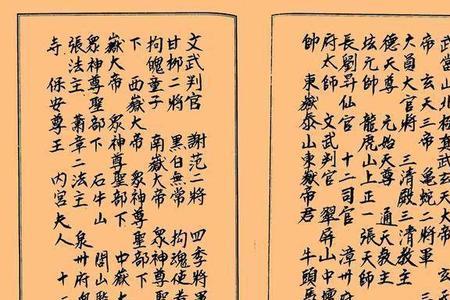 武當山北極真武玄天大
帝 玄天三帝 龜蛇二將軍
大昌大官將 三清殿三清教主
德天尊 元始天尊 通天教主
坛元帥 龍虎山上正一張天師
府太師 文武判官 翠屏山中
長劉昇仙官 十二司官 漳州府
帥 東嶽泰山東嶽帝君 牛頭馬
文武判官 謝范二將 四季將
甘柳二將 黑白無常 拘魂使
拘魄童子 南嶽大帝 眾神
下 西嶽大帝 眾神尊聖部下
嶽大帝 眾神尊聖部下 中嶽
眾神尊聖部下 石牛山 閭山
張法主 蕭章二法主 泉州府
寺 保安尊王 內宮夫人 十